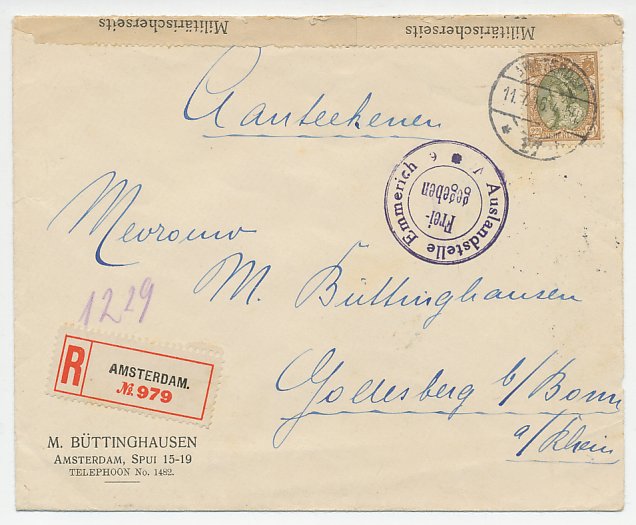 Militärischerseits Militärischerseits
Aanteekenen
Auslandstelle Emmerich
Frei-
gegeben
Mevrouw
M. Büttinghausen
Godesberg b/Bonn
a/Rhein
1229
R
AMSTERDAM.
№ 979
M. BÜTTINGHAUSEN
AMSTERDAM, SPUI 15-19
TELEPHOON No. 1482.